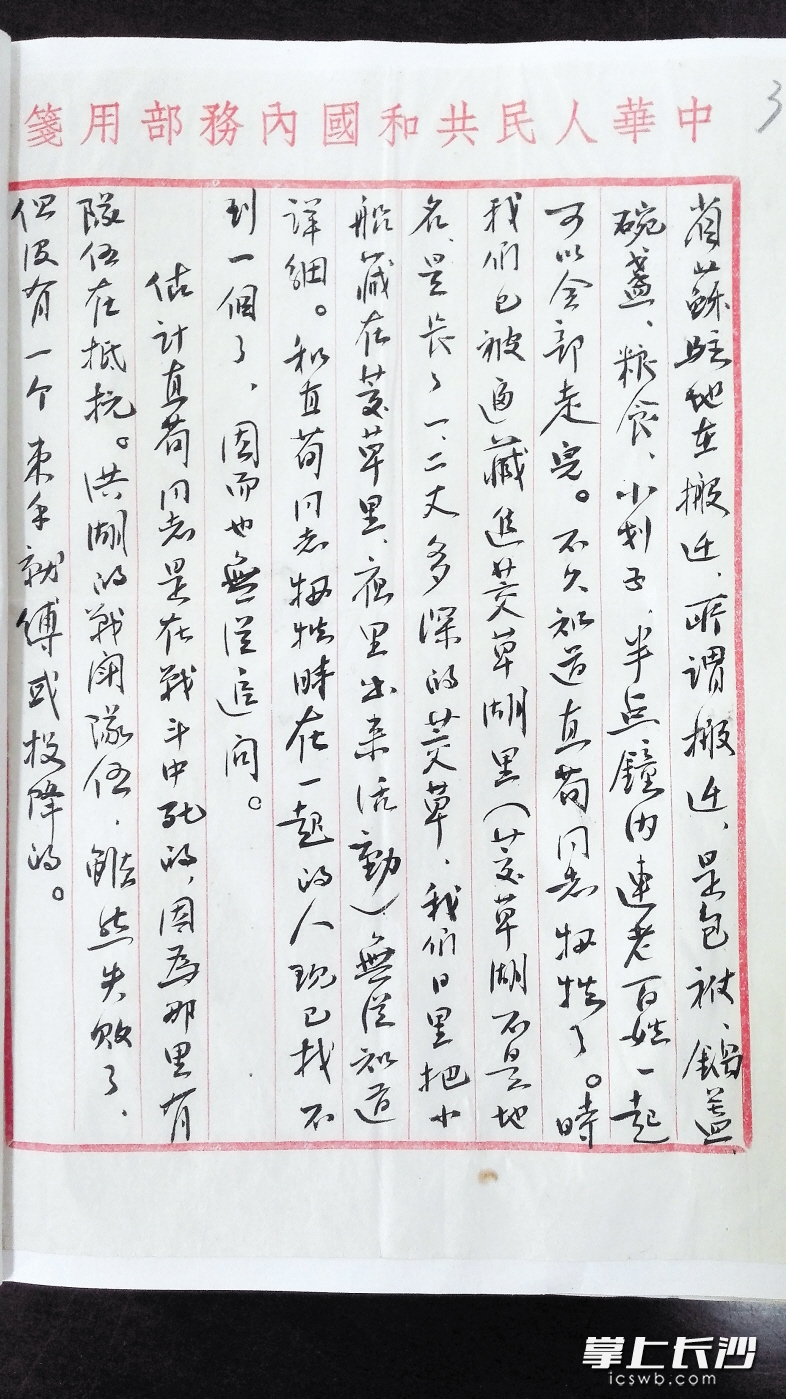 中華人民共和國內務部用箋
3
省蘇駐地在搬迁，所謂搬迁，是包被、鍋盖
碗盞、粮食、小划子，半点鐘内連老百姓一起
可以全部走完。不久知道直荀同志牺牲了。時
我们已被逼藏進茭草湖里（茭草湖不是地
名，是长了一、二丈多深的茭草，我们日里把小
船藏在茭草里，夜里出来活動）無從知道
詳細。和直荀同志牺牲時在一起的人現已找不
到一個了，因而也無從追问。
估計直荀同志是在戰斗中死的，因為那里有
隊伍在抵抗。洪湖的戰闹隊伍，虽然失敗了，
但没有一个束手就缚或投降的。
掌上长沙
icswb.com